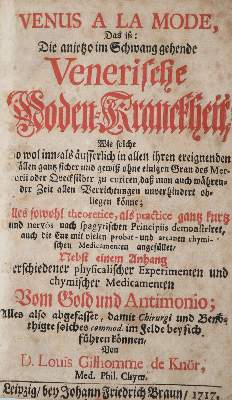 VENUS A LA MODE,
Das ist:
Die anietzo im Schwang gehende
Venerische
Poden-Kranckheit,
Wie solche
so wol inn- als äusserlich in allen ihren ereignenden
Fällen gantz sicher und gewiß ohne einigen Gran des Mer-
curii oder Qvecksilber zu curiren, daß man auch währen-
der Zeit allen Verrichtungen unverhindert ob-
liegen könne;
Alles sowohl theoretice, als practice gantz kurtz
und nervös nach spagyrischen Principiis demonstriret,
auch die Cur mit vielen probat- und arcanen chymi-
schen Medicamenten angefüllet,
Nebst einem Anhang
verschiedener physicalischer Experimenten und
chymischer Medicamenten
Vom Gold und Antimonio;
Alles also abgefasset, damit Chirurgi und Benö-
thigte solches commod. im Felde bey sich
führen können,
Von
D. Louis Gilhomme de Knör,
Med. Phil. Chym.
Leipzig, bey Johann Friedrich Braun, 1717.